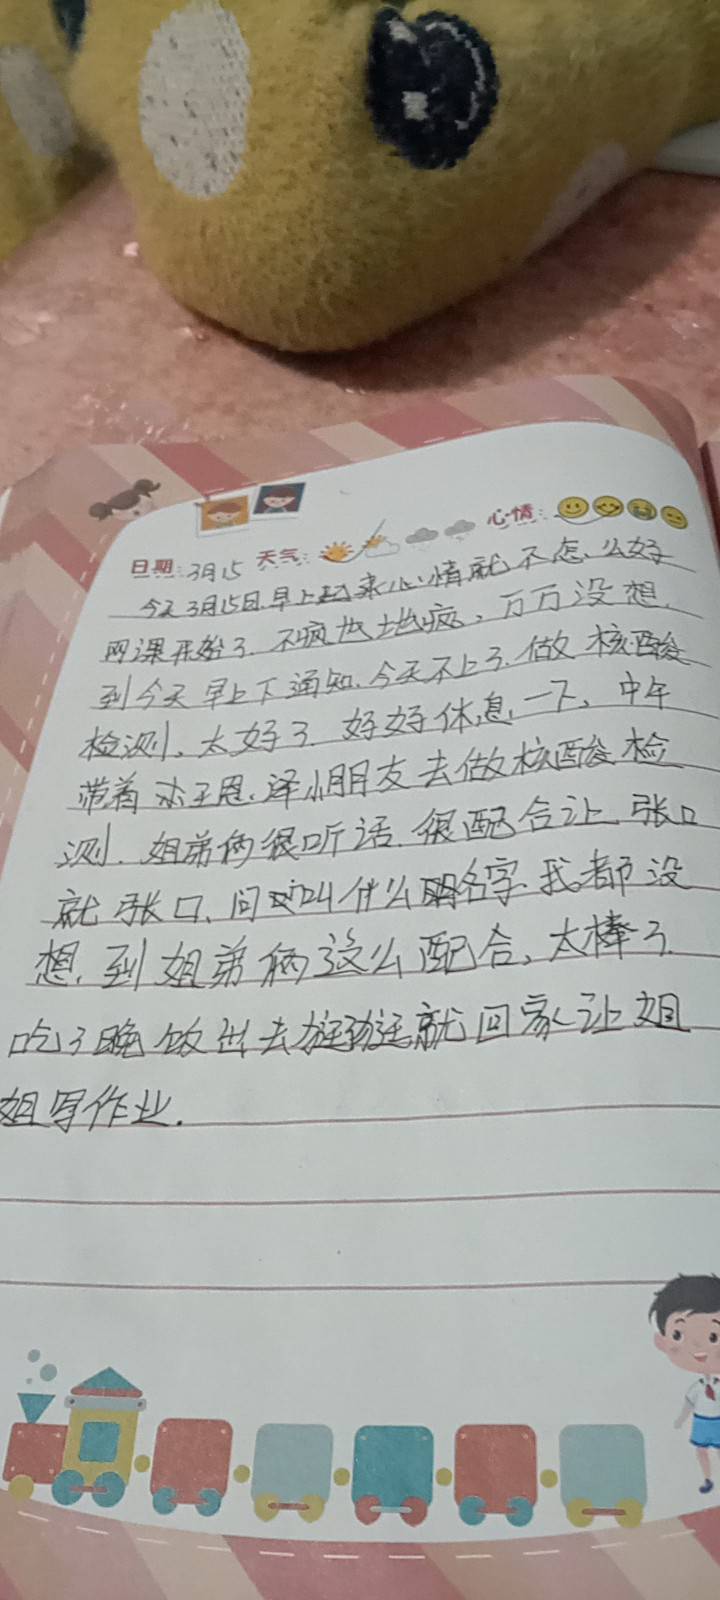 日期: 3月15 天气: 心情:
今天3月15日.早上起来心情就不怎么好
网课开始了.不疯也地疯,万万没想.
到今天早上下通知.今天不上了.做核酸
检测.太好了.好好休息一下,中午
带着 恩.泽小朋友去做核酸检
测.姐弟俩很听话.很配合让张口
就张口.问叫什么名字.我都没
想.到姐弟俩这么配合,太棒了.
吃了晚饭出去就回家让姐
姐写作业.